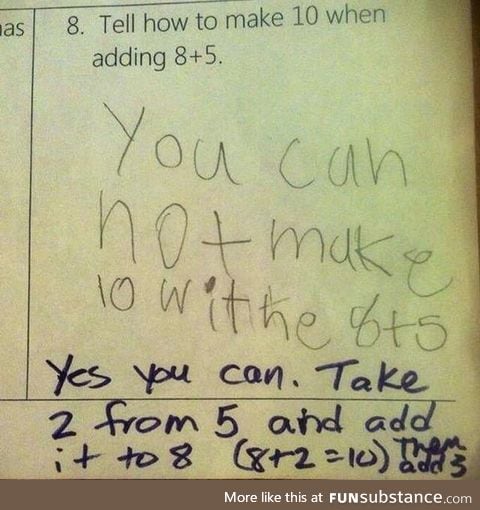 as
8. Tell how to make 10 when
adding 8+5.
You can
not make
10 withe 8+5
Yes you can. Take
2 from 5 and add
it to 8 (8+2=10) Then add 3
More like this at FUNsubstance.com